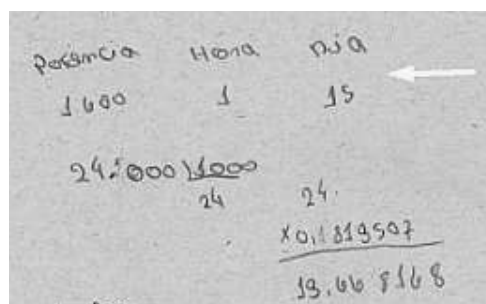 Potência Hora Dia
1600 1 15
24.000 1000
24 24.
x0,1819507
19.668168